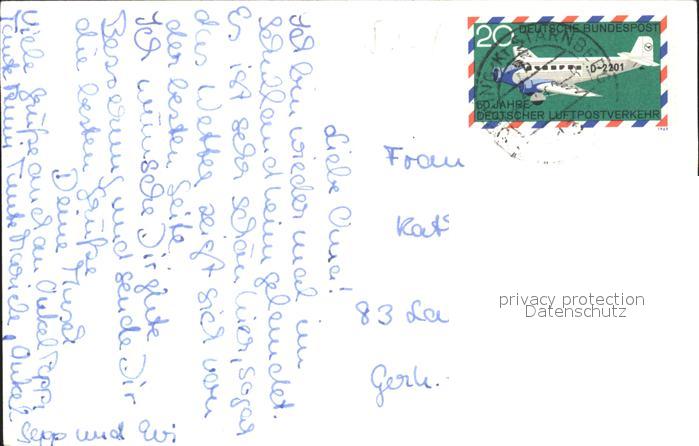 Liebe Oma!
Ich bin wieder mal im
gelandet.
Es ist sehr schön hier, sogar
das Wetter zeigt sich von
der besten Seite.
Ich wünsche Dir gute
Besserung und sende Dir
die besten Grüße
Deine
Viele Grüße auch an Onkel Peppi
Tante Fanni, Tante Marie, Onkel
Sepp und
20 DEUTSCHE BUNDESPOST
D-2201
50 JAHRE
DEUTSCHER LUFTPOSTVERKEHR
1969
STARNBERG
Frau
Kat
83 La
Gerh.
privacy protection
Datenschutz